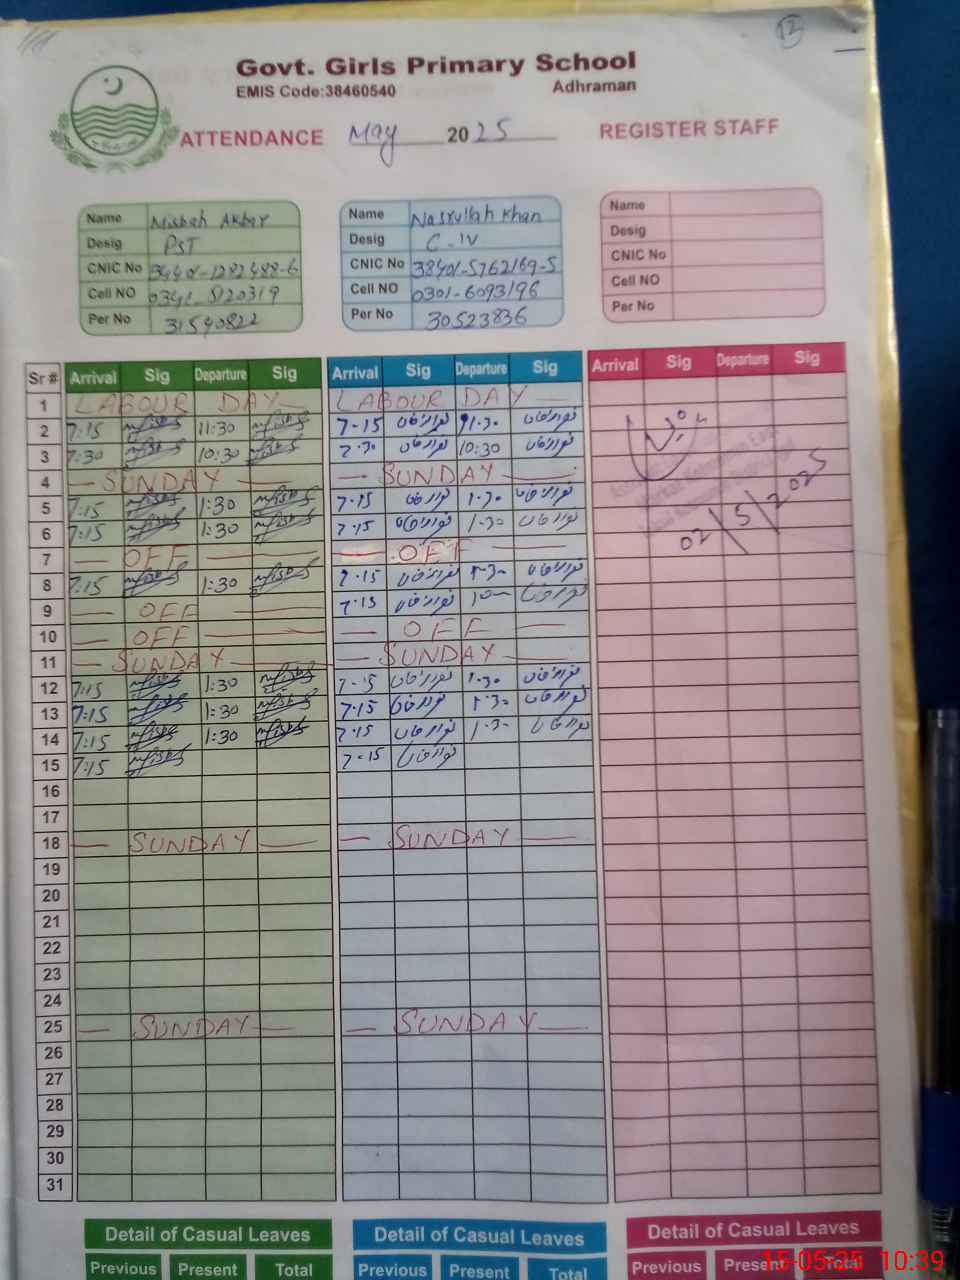 12
Govt. Girls Primary School
EMIS Code:38460540 Adhraman
ATTENDANCE May 2025 REGISTER STAFF
Name Misbah Akbar
Desig PST
CNIC No 34401-1282488-6
Cell NO 0341-5120319
Per No 31540822
Name Nasrullah Khan
Desig C-IV
CNIC No 38401-5762169-5
Cell NO 0301-6093196
Per No 30523836
Name
Desig
CNIC No
Cell NO
Per No
Sr # Arrival Sig Departure Sig Arrival Sig Departure Sig Arrival Sig Departure Sig
1 LABOUR DAY LABOUR DAY
2 7:15 11:30 7-15 11-30
3 7:30 10:30 7-30 10:30
4 SUNDAY SUNDAY
5 7:15 1:30 7-15 1-30
6 7:15 1:30 7-15 1-30
7 OFF OFF
8 7:15 1:30 7-15 1-30
9 OFF 7-15
10 OFF OFF
11 SUNDAY SUNDAY
12 7:15 1:30 7-15 1-30
13 7:15 1:30 7-15 1-30
14 7:15 1:30 7-15 1-30
15 7:15 7-15
16
17
18 SUNDAY SUNDAY
19
20
21
22
23
24
25 SUNDAY SUNDAY
26
27
28
29
30
31
02/5/2025
Detail of Casual Leaves Detail of Casual Leaves Detail of Casual Leaves
Previous Present Total Previous Present Total Previous Present Total
15-05-25 10:39